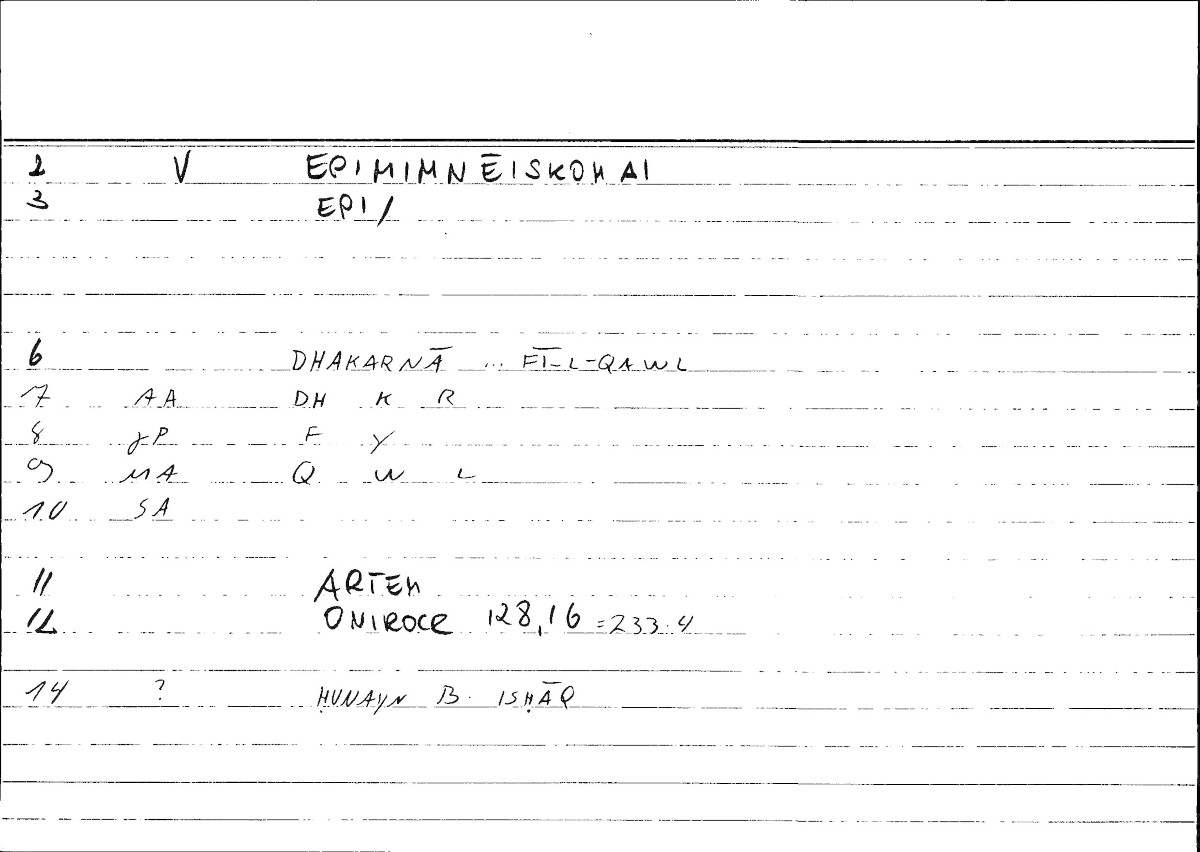 2 V EPIMIMNĒISKOMAI
3 EPI/
6 DHAKARNĀ ... FĪ-L-QAWL
7 AA DH K R
8 JP F Y
9 MA Q W L
10 SA
11 ARTEM
12 ONIROCR 128,16 = 233.4
14 ? ḤUNAYN B. ISḤĀQ